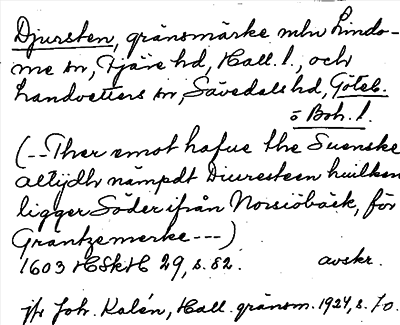 Djursten, gränsmärke mln Lindo-
me sn, Fjäre hd, Hall. l., och
Landvetters sn, Sävedals hd, Göteb.
o Boh. l.
(--Ther emot hafue the Suenske
altijdh nämpdt Diuresteen huilken
ligger Söder ifrån Norsiöbäck, för
Grantzemerke---)
1603 HSkH 29, s. 82. avskr.
jfr Joh. Kalén, Hall. gränsm. 1924, s. 70.